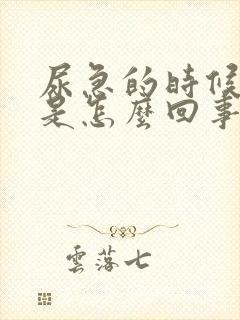 尿急的時候
是怎麼回事
雲落七